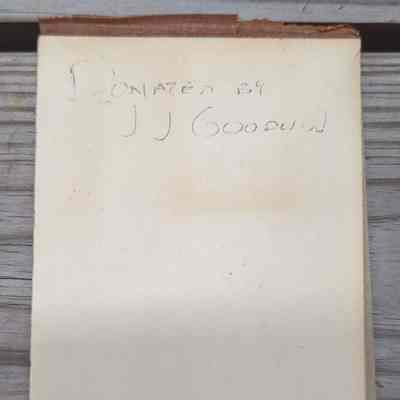 DONATED BY
J J GOODWIN